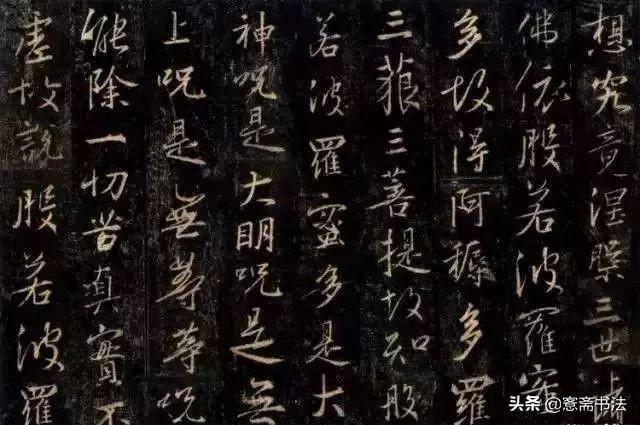 想究竟涅槃三世諸
佛依般若波羅蜜
多故得阿耨多羅
三藐三菩提故知般
若波羅蜜多是大
神咒是大明咒是無
上咒是無等等咒
能除一切苦真實不
虛故說般若波羅
头条 @愙斋书法